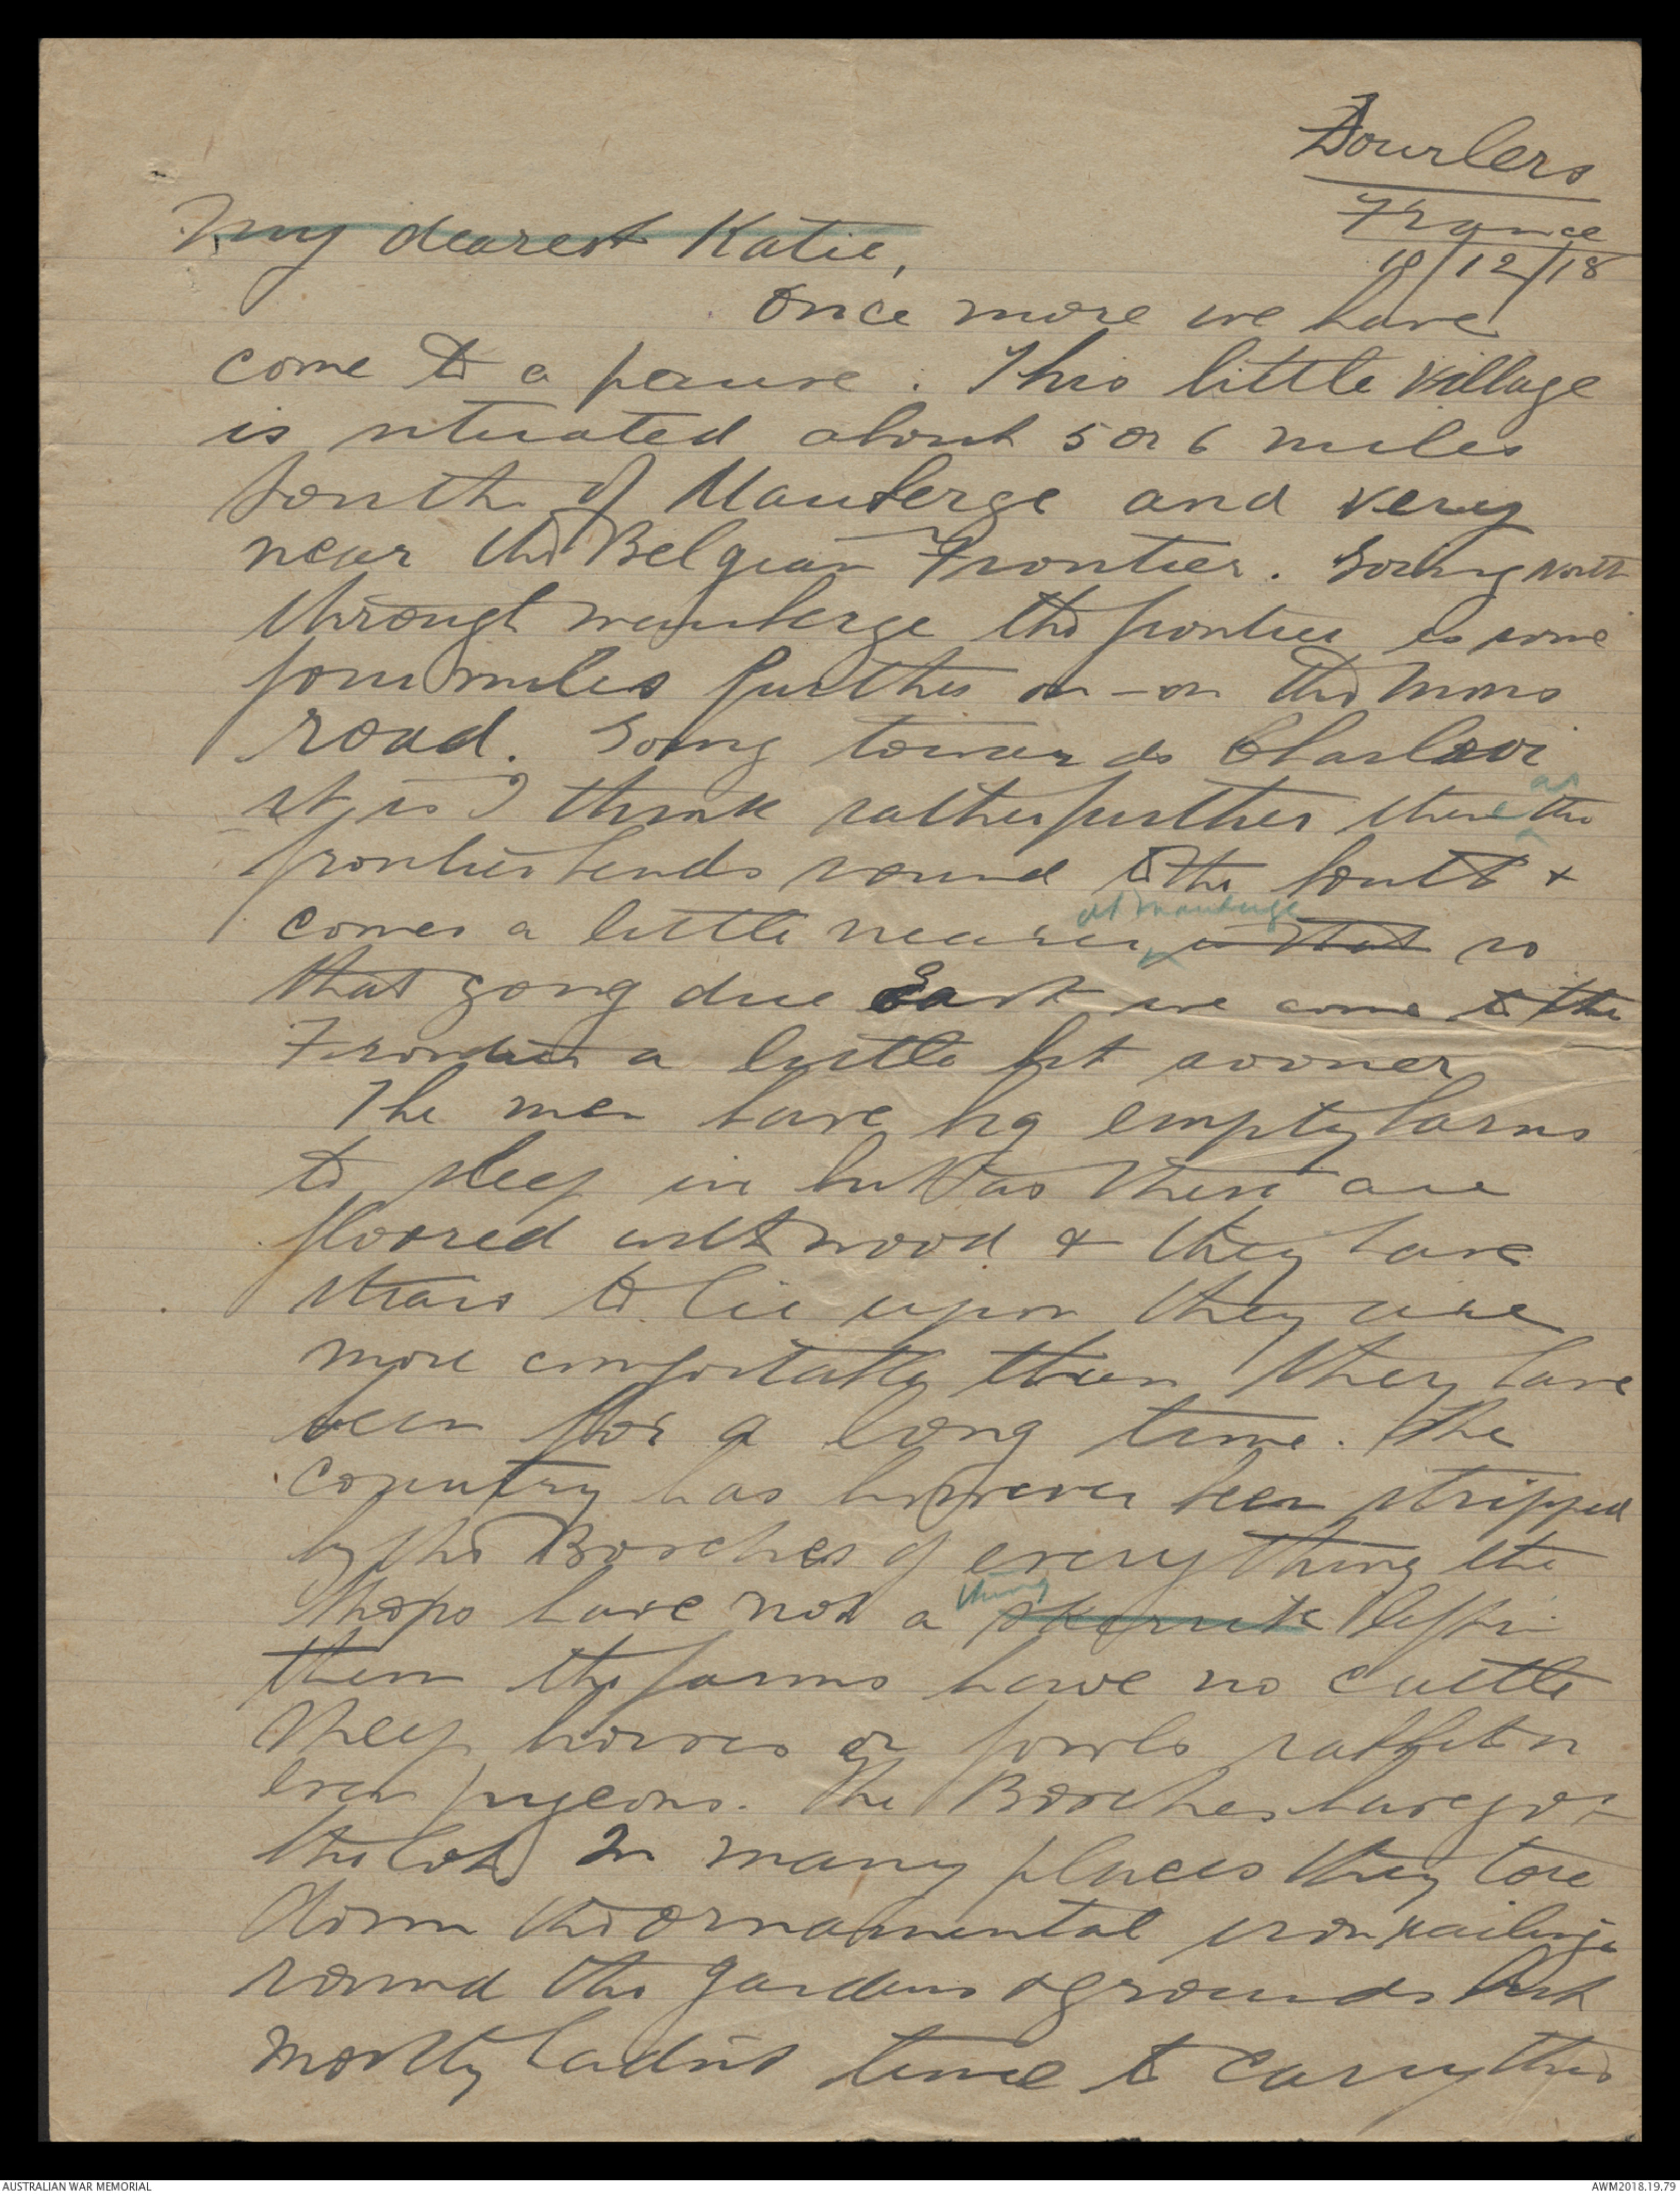 Dourlers
France
18/12/18
My dearest Katie,
Once more we have
come to a pause. This little village
is situated about 5 or 6 miles
South of Mauberge and very
near the Belgian Frontier. Going north
through mauberge the frontier is some
four miles further on - on the Mons
road. Going towards Charleroi
it is I think rather further then as the
frontier bends round to the South &
comes a little nearer at Mauberge so
that going due East we come to the
Frontier a little bit sooner
The men have big empty barns
to sleep in but as these are
floored with wood & they have
straw to lie upon they are
more comfortably than they have
been for a long time. The
country has however been stripped
by the Bosches of everything the
shops have not a thing skerrick left in
them the farms have no cattle
sheep horses or fowls rabbits or
even pigeons. The Bosches have got
the lot. In many places they tore
down the ornamental iron railings
round the gardens & grounds but
mostly hadn't time to carry this
AUSTRALIAN WAR MEMORIAL
AWM2018.19.79